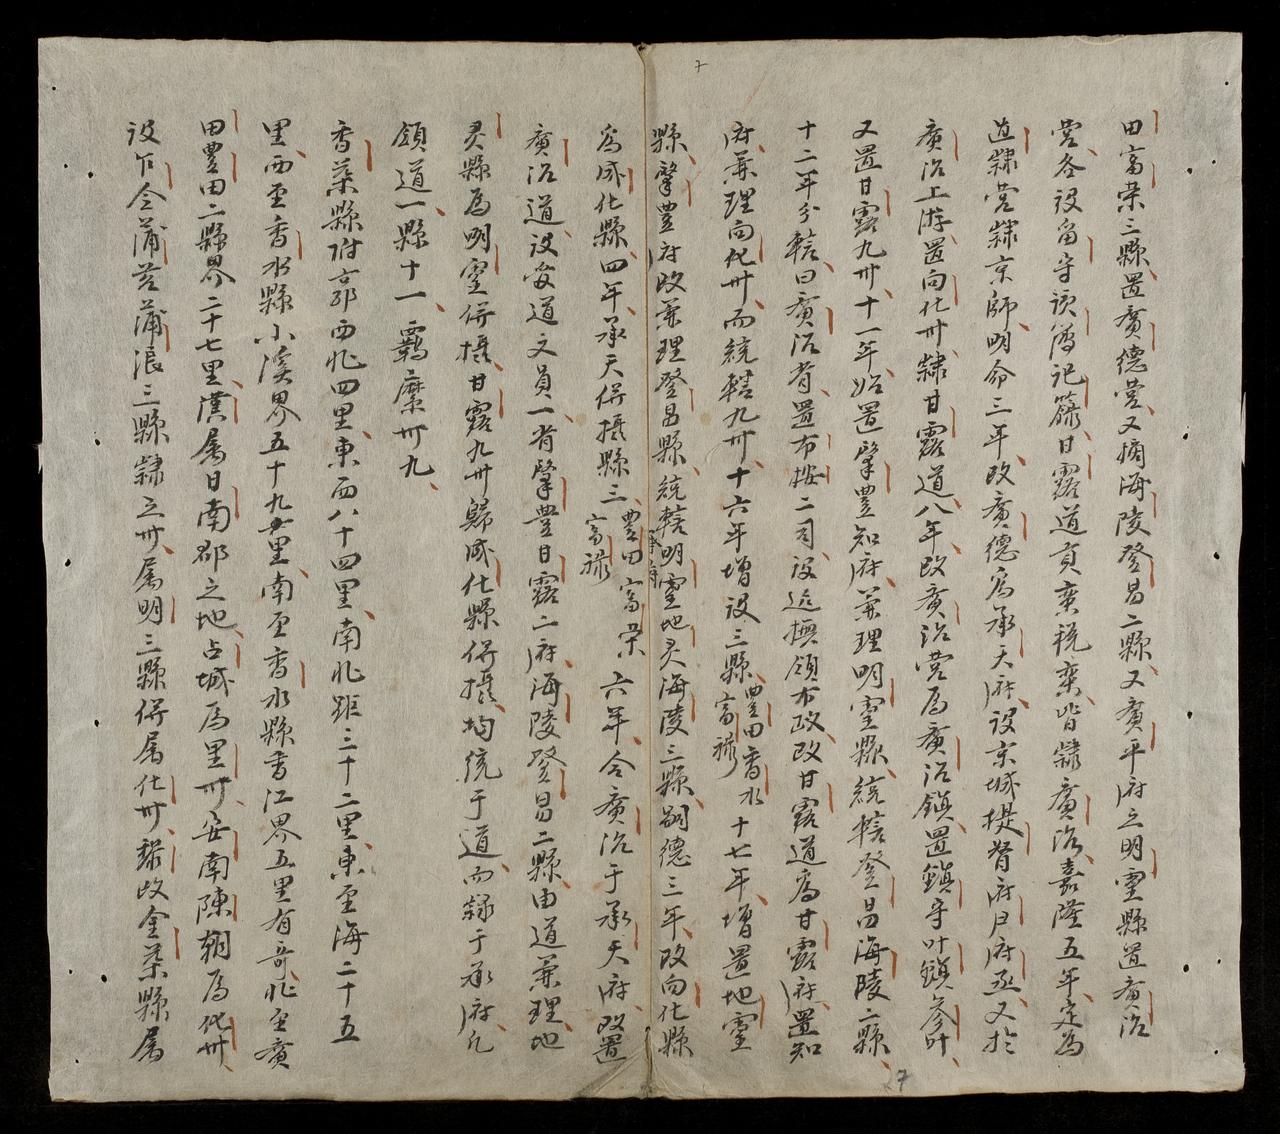 7
田富荣三縣置廣德营又摘海陵登昌二縣又廣平府之明灵縣置廣治
营各設留守該簿記籙甘露道貢蛮税蛮皆隸廣治嘉隆五年定為
直隸营隸京師明命三年改廣德為承天府設京城提督府尹府丞又於
廣治上游置向化卅隸甘露道八年改廣治营為廣治鎮置鎮守叶鎮參叶
又置甘露九卅十一年始置肇豊知府兼理明灵縣統轄登昌海陵二縣
十二年分轄曰廣治省置布按二司設巡撫領布政改甘露道為甘露府置知
府兼理向化卅而統轄九卅十六年增設三縣豊田香水富禄十七年增置地灵
縣肇豊府改兼理登昌縣統轄明灵地灵海陵三縣嗣德三年改向化縣
為成化縣四年承天併攝縣三豊田富荣富禄六年合廣治于承天府改置
廣治道設安道文員一省肇豊甘露二府海陵登昌二縣由道兼理地
灵縣為明灵併攝甘露九卅歸成化縣併攝均統于道而隸于承府凡
領道一縣十一羈縻卅九
香荼縣附京郭西北四里東西八十四里南北距三十二里東至海二十五
里西至香水縣小溪界五十九里南至香水縣香江界五里有奇北至廣
田豊田二縣界二十七里漢属日南郡之地占城為里卅安南陳朝為化卅
設乍令蒲苔蒲浪三縣隸之卅属明三縣併属化卅黎改金荼縣属
7